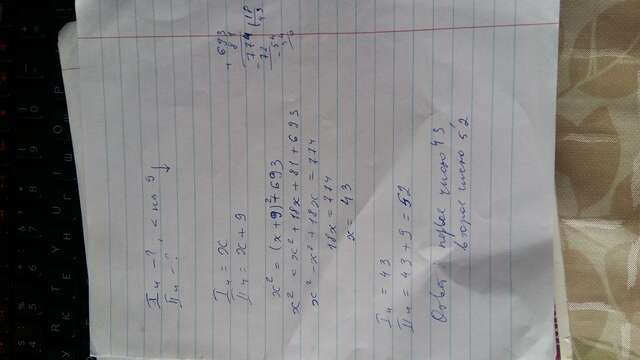 I ч - ?, < на 9 ↓
II ч - ?
I ч = x
II ч = x + 9
x² = (x + 9)² + 693
x² = x² + 18x + 81 + 693
x² - x² + 18x = 774
18x = 774
x = 43
I ч = 43
II ч = 43 + 9 = 52
Ответ: первое число 43
второе число 52
+ 693
81
774 | 18
- 72 | 43
- 54
54
0